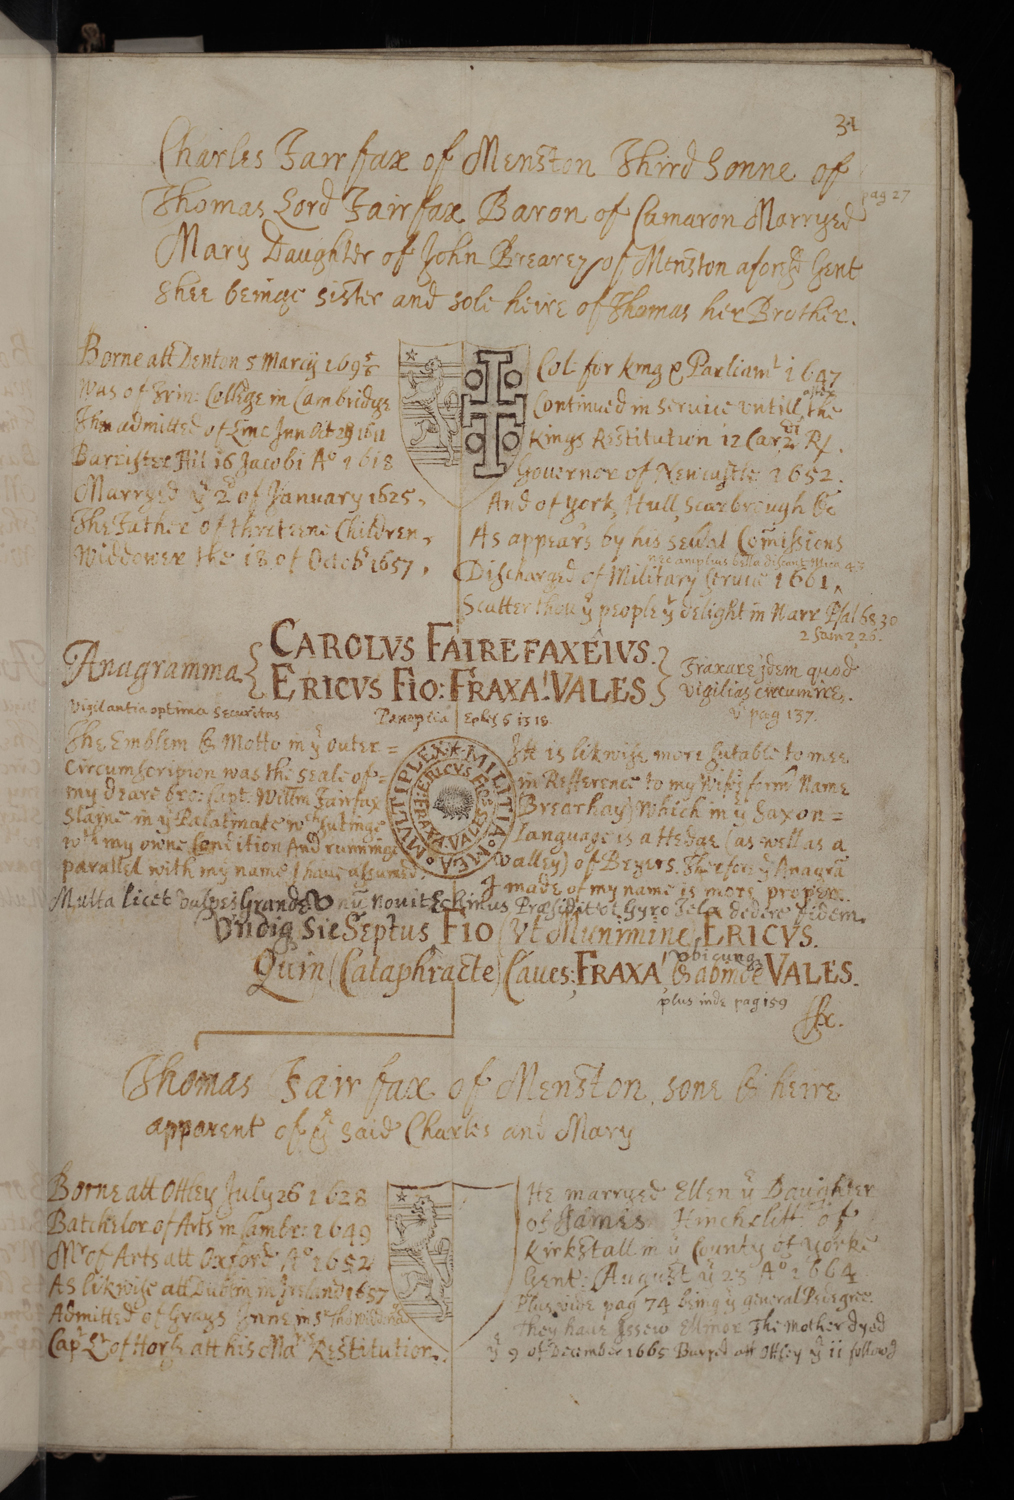 31
Charles Fairfax of Menston Third Sonne of
Thomas Lord Fairfax Baron of Camaron Marryed
pag 27
Mary Daughter of John Brearey of Menston aforesd Gent
Shee beinge sister and sole heire of Thomas her Brother.
Borne att Denton 5 March 1695
Was of Trin: Colledge in Cambridge
Then admitted of Linc Inn Oct 28 1611
Barrister Hil 16 Jacobi Ao 1618
Marryed ye 2d of January 1625,
The Father of threteene Children,
Widdower the 18 of Octobr 1657,
Col: for King & Parliamt 1647
Continued in service untill after the
Kings Restitution 12 Car 2di R.
Governor of Newcastle 1652.
And of York, Hull, Scarbrough &c
As appears by his sevral Comissions
nec amplius bella discant Mica 4.3
Discharged of Military Service 1661,
Scatter thou ye people yt delight in Warr Psal 68 30
2 Sam 2 26.
Anagramma
CAROLVS FAIREFAXEIVS.
ERICVS FIO: FRAXA! VALES
Fraxare idem quod
vigilias circumire.
v pag 137.
Vigilantia optima securitas
Panoplia Ephes 6 13 18
The Emblem & Motto in ye outer=
Circumscription was the seale of=
my deare bro: Capt. Willm Fairfax
Slayne in ye Palatinate wch sutinge
wth my owne Condition And runninge
paralled with my name I have assumed.
MVLTIPLEX MILITIA MEA
ERICVS FIO: FRAXA VALES
It is likwise more sutable to mee
in Refference to my Wifes form Name
(Brearhay) Which in ye Saxon=
Language is a Hedge (as well as a
valley) of Bryers. Therefore ye Anagra
I made of my name is more proper.
Multa licet vulpes Grande Vnu novit Echinus Præsidit et Gyro Tela dedere fidem.
Vndiq Sic Septus FIO (Vt Munimine) ERICVS.
Quin (Cataphracte) Caves; FRAXA! vbicunq & admóe VALES.
plus inde pag 159
&c.
Thomas Fairfax of Menston, sone & heire
apparent of ye said Charles and Mary
Borne att Ottley July 26 1628
Batchelor of Arts in Cambr: 1649
Mr of Arts att Oxford Ao 1652
As likwise att Dublin in Ireland 1657
Admitted of Grays Inne in
Cap Lt of Horse att his Mats Restitution.
He marryed Ellen ye Daughter
of James Hinchcliff of
Kirkstall in ye County of Yorke
Gent: August ye 23 Ao 1664
Plus vide pag 74 being ye general Pedegree.
They have Issew Ellinor The mother dyed
ye 9 of December 1665 Buryed att Ottley ye 11 followd